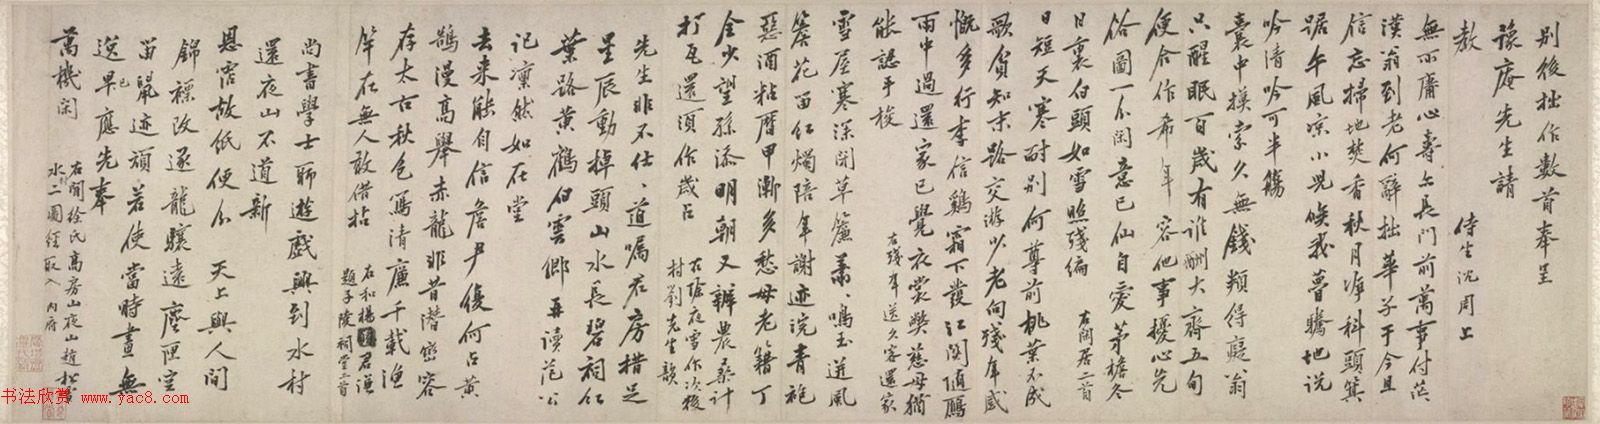 别後拙作數首奉呈
豫庵先生請
教 侍生沈周上
無所庸心壽亦長門前萬事付茫
漠翁到老何辭拙華子于今且
信忘掃地焚香秋月淨科頭箕
踞午風凉小兒候我瞢騰地說
吟清吟可半觴
囊中摸索久無錢頼得癡翁
只醒眠百歲有誰酬大齊五旬
便合作希年容他事擾心先
俗圖一不閑意已仙自愛茅檐冬
日裏白頭如雪照殘編 右閑居二首
日短天寒耐别何尊前桃葉不成
歌貧知末路交游少老向殘年感
慨多行李信鷄霜下發江関値鴈
雨中過還家已覺衣裳獘慈母猶
能認手梭 右殘年送久客還家
雪屋寒深閉草簾蕭、鳴玉迸風
簷花留仁燭陪年謝迹浣青袍
惡酒粘曆甲漸多愁母老籍丁
全少望孫添明朝又辦農桑計
打瓦還須作歲占 右除夜雪作次後村劉先生韻
先生非不仕、道嘱君房措足
星辰動掉頭山水長碧祠仁
葉路黄鶴白雲鄉再讀范公
記凛然如在堂
去来能自信詹尹優何占黄
鵠漫高舉赤龍非昔潛巒容
存太古秋色寫清廉千載漁
竿在無人敢借拈 右和楊君謙題子陵祠堂二首
尚書學士聊遊戲興到水村
還夜山不道新
恩窖故紙便分 天上與人間
錦褾改逐龍驤遠塵匣空
留鼠迹頑若使當時畫無
逸早已應先奉
萬機閑 右聞徐氏高房山夜山趙松雪水村二圖經取入内府
书法欣赏 www.yac8.com